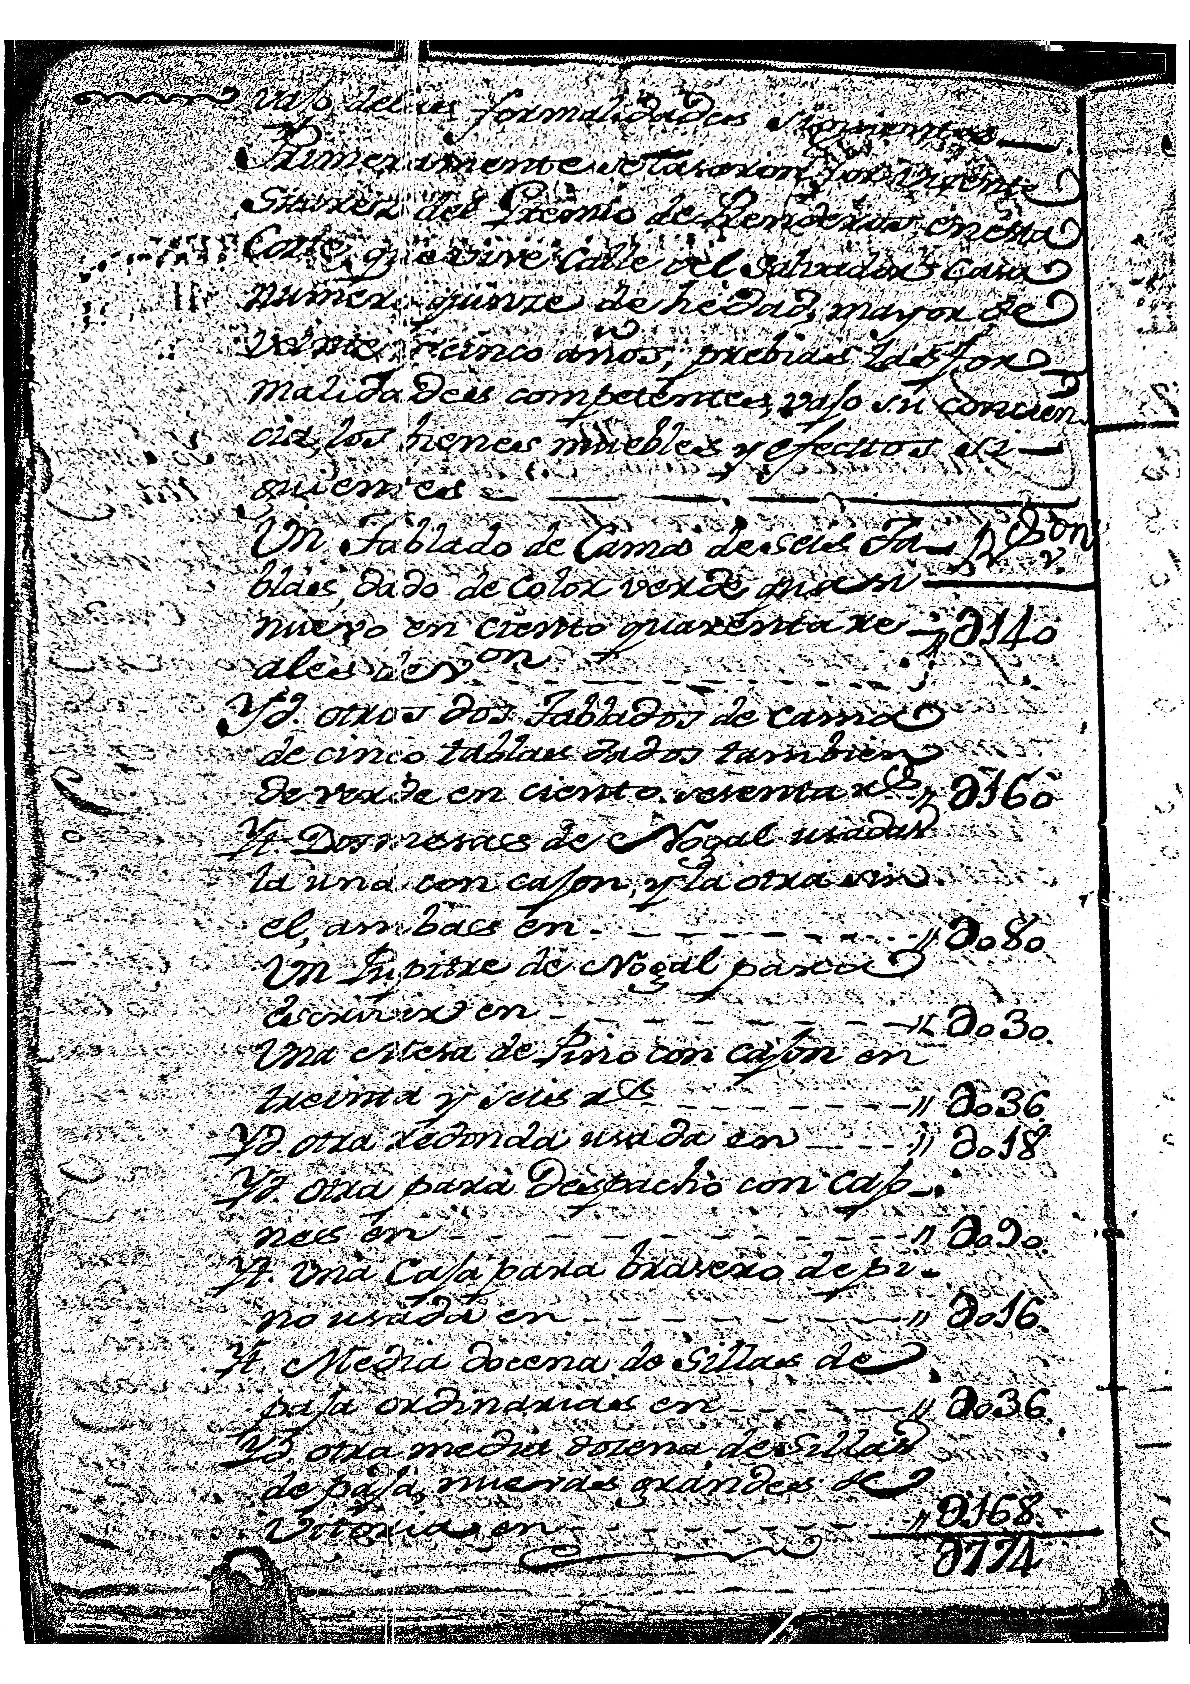 vajo de las formalidades siguientes
Primeramente se tasaron por Vicente
Suarez del Gremio de Prenderos en esta
Corte, que vive Calle del Salvador Casa
numero quinze de hedad, mayor de
veinte y cinco años, prebias las for
malidades competentes, vajo su concien
cia, los bienes muebles y efecttos si
guientes
Un Tablado de Cama de seis Ta- Rs. Von
blas, dado de Color verde quasi
nuevo en ciento quarenta re " D140
ales de von
Yd. otros dos Tablados de Cama
de cinco tablas dados tambien
de verde en ciento sesenta rs " D160
Yt. Dos mesas de Nogal usadas
la una con cajon, y la otra sin
el, ambas en " D080
Un Pupitre de Nogal para
escrivir en " D030.
Una Mesa de Pino con cajon en
treinta y seis rs " D036
Yd. otra redonda usada en " D018
Yd. otra para Despacho con Cajo-
nes en " D090.
Yt. una Caja para brasero de pi-
no usada en " D016.
Yt. Media docena de Sillas de
paja ordinarias en " D036
Yd. otra media docena de Sillas
de paja, nuevas grandes de
Vitoria en " D168.
D774